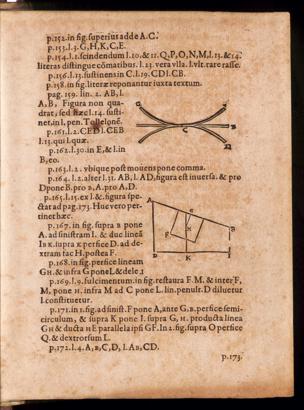 p.152.in fig.superius adde A.C.
p.153.l.3.G,H,K,C,E.
p.154.l.1.scindendum l.10.& 11.Q,P,O,N,M,l.13.& 14.
literas distingue cōmatibus.l.23.vera vlla.l.vlt.rare rasse.
p.156.l.13.sustinens in C.l.19.CD l.CB.
p.158.in fig.literæ reponantur iuxta textum.
pag.159. lin. 2. AB, l.
A, B, Figura non qua-
drat, sed hæc l.14. susti-
net, in l.pen. Tollenonē.
p.161.l.2.CED l.CEB
l.13.qui l.quæ.
p.162.l.30.in E,& l.in
B,eo.
p.163.l.2.vbique post mouens pone comma.
p.164. l.2. alter l.31. AB, l. AD, figura est inuersa. & pro
D pone B. pro B, A. pro A, D.
p.165.l.15.ex l.&.figura spe-
ctat ad pag.173.Huc vero per-
tinet hæc.
p.167. in fig. supra B pone
A. ad sinistram I. & duc lineā
IB K.supra K perfice D. ad de-
xtram tac H, postea F.
p.168.in fig.perfice lineam
GH.& infra G pone L,& dele,1
p.169.l.9.fulcimentum.in fig.restaura F.M. & inter F,
M, pone H. infra M ad C pone L. lin.penult.D diluetur
l.constituetur.
p.171.in 1.fig.ad sinist.F pone A,ante G,B.perfice semi-
circulum, & supra K pone I. supra G, H. producta linea
GH & ducta HE parallela ipsi GF.In 2.fig.supra O perfice
Q.& dextrorsum L.
p.172.l.4.A,B,C,D, l.AB,CD.
p.173.
C
B
A
F
K
D
K